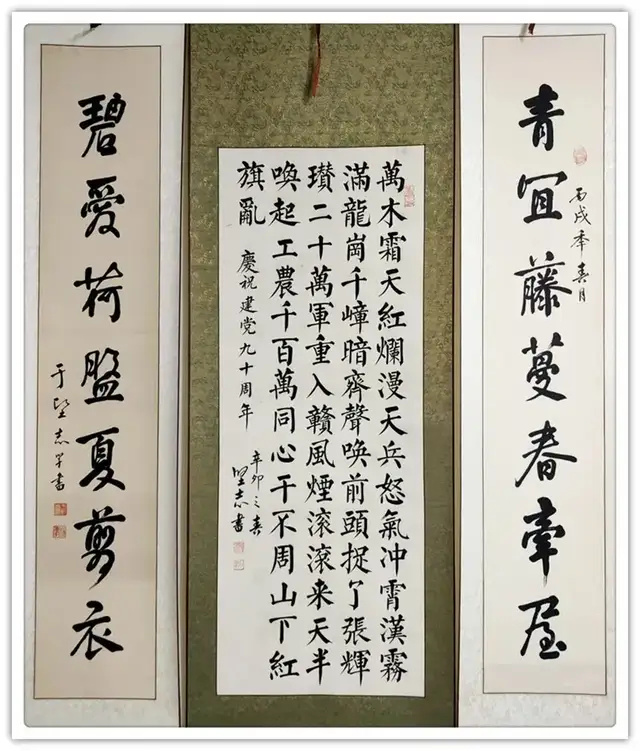 青冝藤蔓春牽屋
丙戌秊春月
萬木霜天紅爛漫天兵怒氣冲霄漢霧
滿龍崗千嶂暗齊聲喚前頭捉了張輝
瓚二十萬軍重入贛風煙滾滾来天半
喚起工農千百萬同心干不周山下紅
旗亂
慶祝建党九十周年
辛卯之春
堅志書
碧愛荷盤夏剪衣
于堅志学書